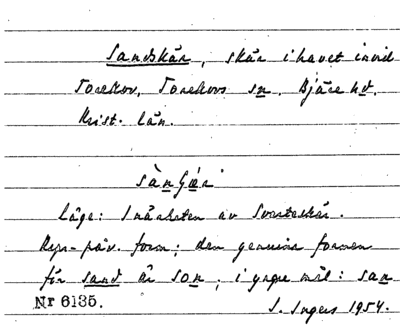 Sandskär, skär i havet invid
Torekov, Torekovs sn, Bjäre hd,
Krist. län.
sàngǽr
Läge: I närheten av Svarteskär.
Rspr-påv. form; den genuina formen
för sand är son, i yngre mål: san
Nr 6135.
I. Ingers 1954.